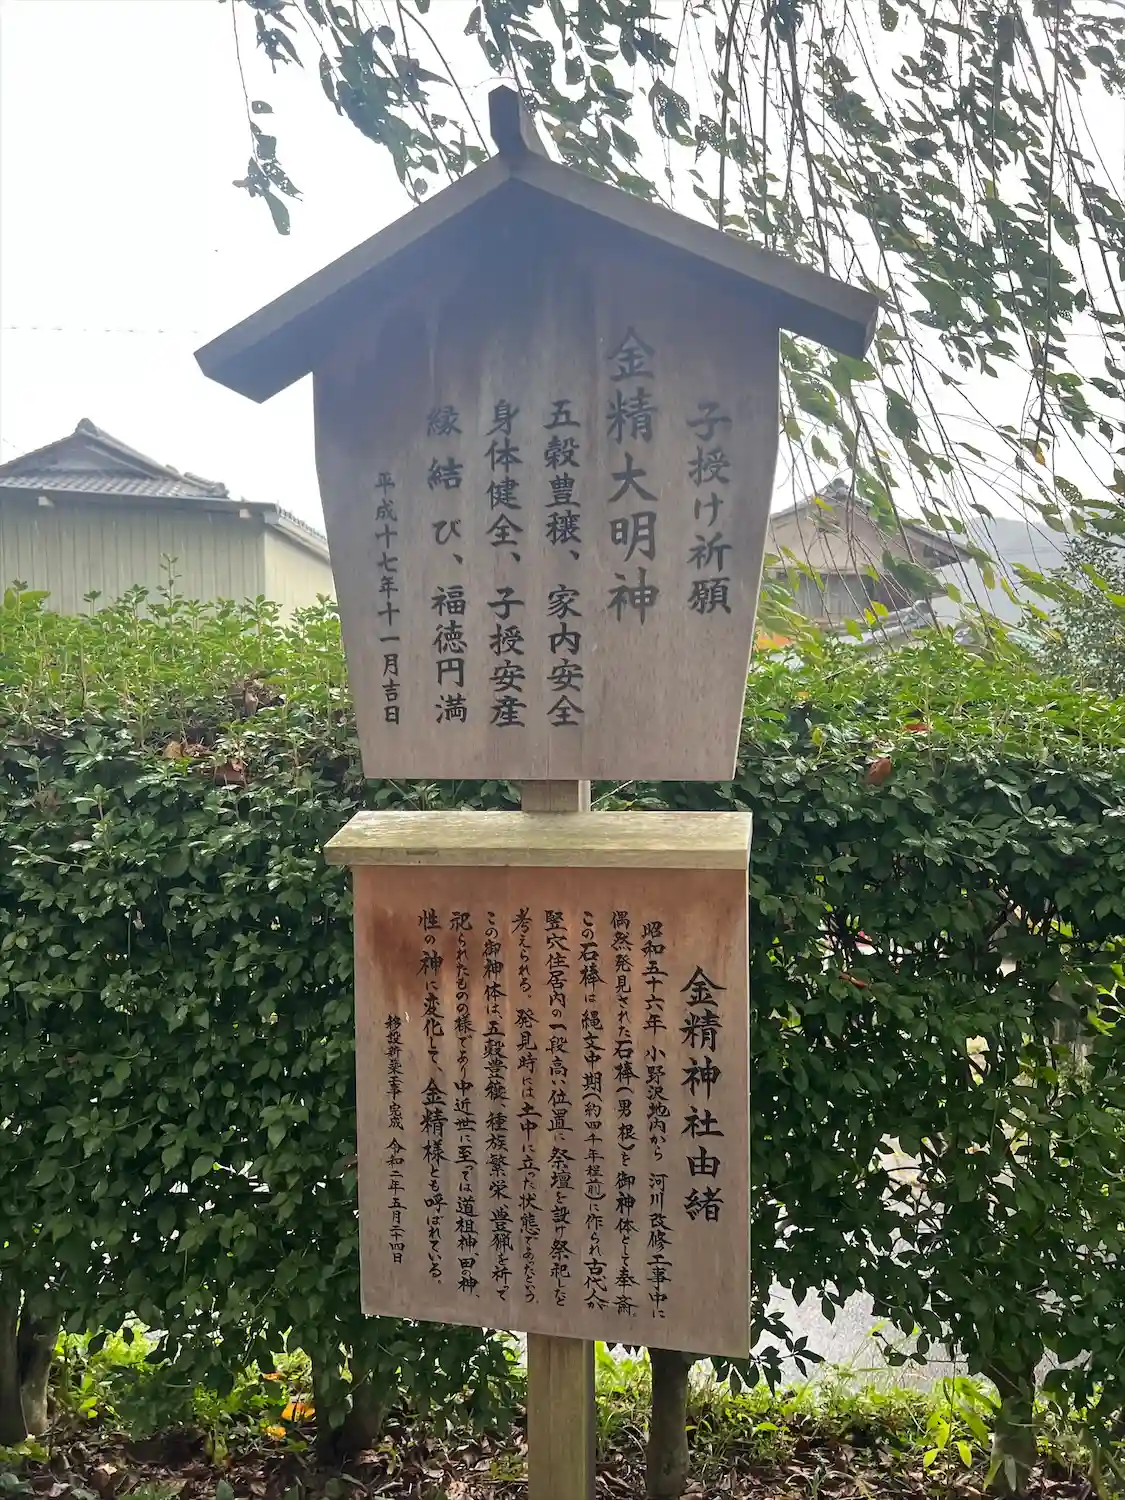 子授け祈願
金精大明神
五穀豊穣、家内安全
身体健全、子授安産
縁結び、福徳円満
平成十七年十一月吉日
金精神社由緒
昭和五十六年 小野沢地内から 河川改修工事中に
偶然発見された石棒(男根)を御神体として奉斎。
この石棒は縄文中期(約四千年程前)に作られ古代人が
竪穴住居内の一段高い位置に祭壇を設け祭祀したと
考えられる。発見時には土中に立った状態であったという。
この御神体は、五穀豊穣、種族繁栄、豊猟を祈って
祀られたものの様であり中近世に至っては道祖神、田の神、
性の神に変化して、金精様とも呼ばれている。
移設新築工事完成 令和二年五月二十四日